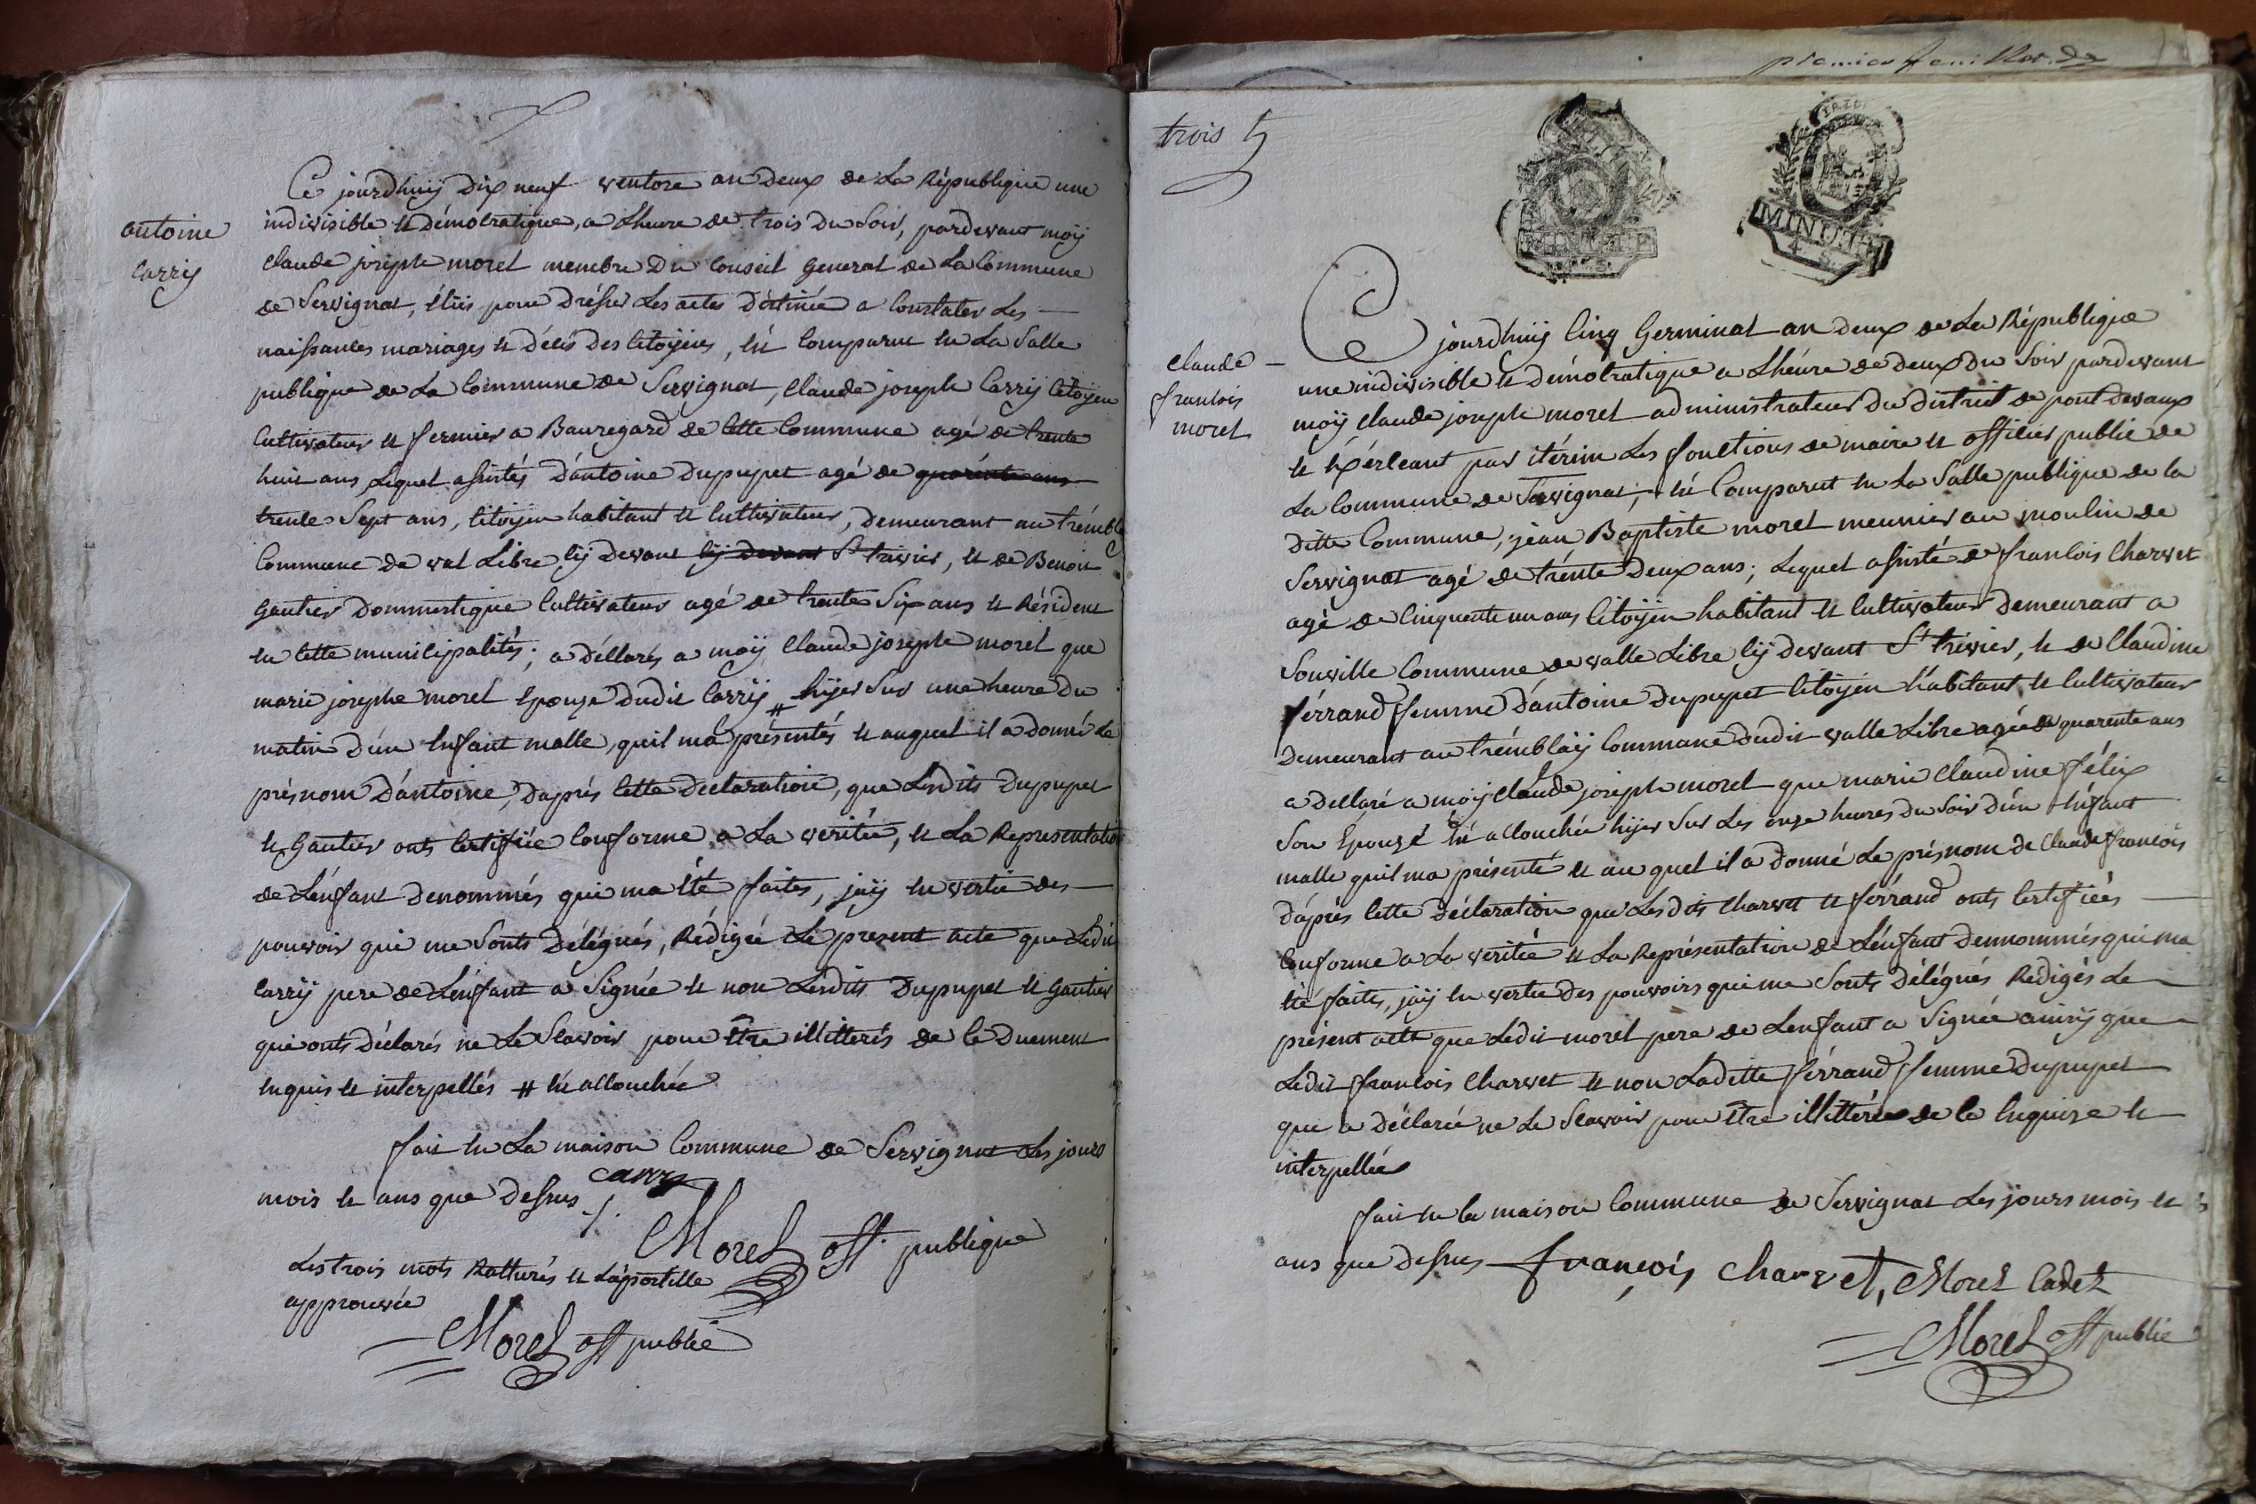 antoine
Carrÿ
Ce jourdhuÿ dix neuf ventose an deux de La République une
indivisible et Démocratique, a Lheure de trois du Soir, pardevant moÿ
Claude joseph morel membre Du Conseil General de La Commune
de Servignat, élüs pour dresser Les actes déstinée a Constater Les
naissances mariages et décés des Citoÿens, est Comparue en La Salle
publique de La Commune de Servignat, Claude joseph Carrÿ Citoÿen
Cultivateur et fermier a Bauregard de Cette Commune agé de trente
huit ans Lequel assistés d'antoine Dupupet agé de quarénte ans
trente Sept ans, Citoÿen habitant et Cultivateur, Demeurant au trémblé
Commune de val Libre Cÿ devant Cÿ devant St trivier, et de Benoit
Gautier Dommestique Cultivateur agé de trente Six ans et Résident
en Cette municipalités; a Déllarés a moÿ Claude joseph morel que
marie josephe morel Epouze Dudit Carrÿ # hÿer Sur une heure du
matin d'un Enfant malle, quil ma présentés et auquel il a donné Le
présnom D'antoine, D'aprés Cette Declaration, que Lesdits Dupupet
et Gautier onts Certifiée Conforme a La veritée, et La Representation
de L'énfant denommés qui ma Eté faites, jaÿ en vertue des
pouvoir qui me Sonts Délégués, Rédigée Le present acte que Ledit
Carrÿ pere de L'énfant a Signée et non Lésdits Dupupet et Gautier
qui onts Déclarés ne Le Scavoir pour être illitterés de Ce Duement
Enquis et interpellés # est accouchée
fait en La maison Commune de Servignat Les jours
mois et ans que dessus ./.
Carry
Morel off. publique
Les trois mots Ratturés et L'apostille
approuvée
Morel off publie
premier feuillet. Dx
trois
MINUTE
MINUTE
4
claude
francois
morel
Ce jourdhuÿ Cinq Germinal an deux de La République
une indivisible et démocratique a Lhéure de deux du Soir pardevant
moÿ Claude joseph morel administrateur du district de pont devaux
et Exérceant par itérim Les fonctions de maire et officier public de
La Commune de Servignat, est Comparut en La Salle publique de la
ditte Commune, jéan Baptiste morel meunier au moulin de
Servignat agé de trénte Deux ans; Lequel assisté de francois Charvet
agé de Cinquente un ans Citoÿen habitant et Cultivateur Demeurant a
Souville Commune de valle Libre Cÿ devant St trivier, et de Claudine
férrand femme D'antoine Dupupet Citoÿen habitant et Cultivateur
Demeurant au trémblaÿ Commune dudit valle Libre agée de quarente ans
a déclaré a moÿ Claude joseph morel que marie Claudine félix
Son Epouze est accouchée hÿer Sur Les onze heures du Soir d'un Enfant
malle quil ma présenté et au quel il a donné Le présnom de Claude francois
D'áprès Cette Déclaration que Lesdits Charvet et férrand onts Certifiées
Conforme a La véritée et La Représentation de L'énfant Dennommés qui ma
Eté faites, jaÿ en vertue des pouvoirs qui me Sonts Délégués Redigés Le
présent acte que Ledit morel pere de Lenfant a Signée ainsÿ que
Ledit francois Charvet et non Laditte férrand femme Dupupet
que a Déclarée ne Le Scavoir pour être illittérée de Ce Enquize et
interpellée
fait en la maison Commune de Servignat Les jours mois et
ans que dessus françois Charvet, Morel Cadet
Morel off publie